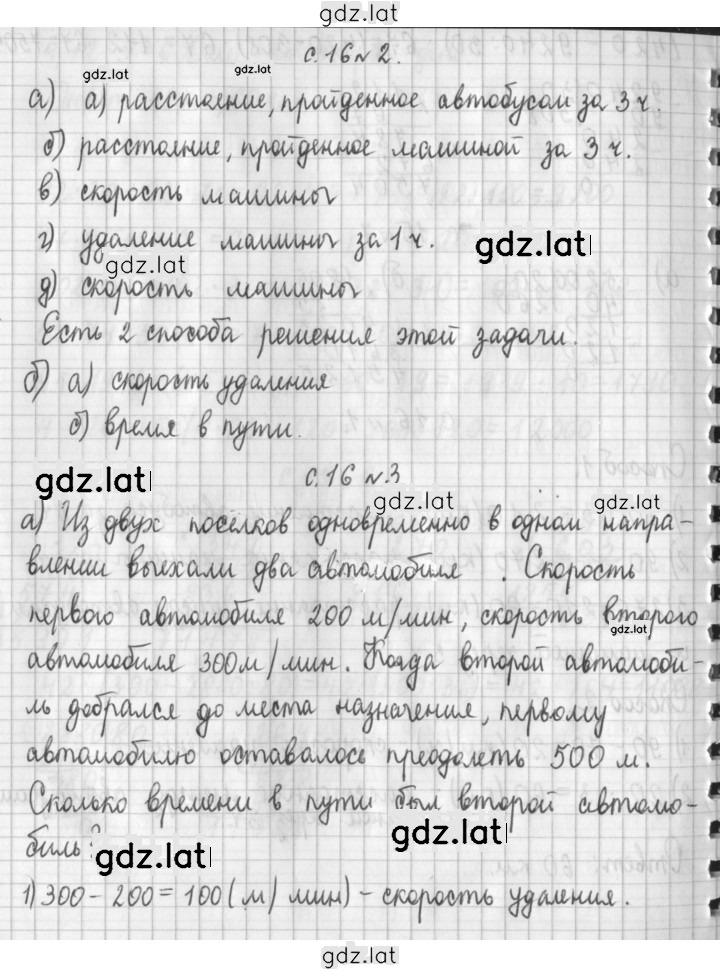 gdz.lat
с. 16 № 2.
gdz.lat gdz.lat
а) а) расстояние, пройденное автобусом за 3 ч.
б) расстояние, пройденное машиной за 3 ч.
в) скорость машины
г) удаление машины за 1 ч.
gdz.lat
gdz.lat
д) скорость машины
Есть 2 способа решения этой задачи.
б) а) скорость удаления
б) время в пути.
gdz.lat
с. 16 № 3
gdz.lat gdz.lat
а) Из двух посёлков одновременно в одном напра-
влении выехали два автомобиля. Скорость
первого автомобиля 200 м/мин, скорость второго
gdz.lat
автомобиля 300 м/мин. Когда второй автомоби-
ль добрался до места назначения, первому
автомобилю оставалось преодолеть 500 м.
Сколько времени в пути был второй автомо-
gdz.lat
биль?
gdz.lat
1) 300 - 200 = 100 (м/мин) - скорость удаления.
gdz.lat